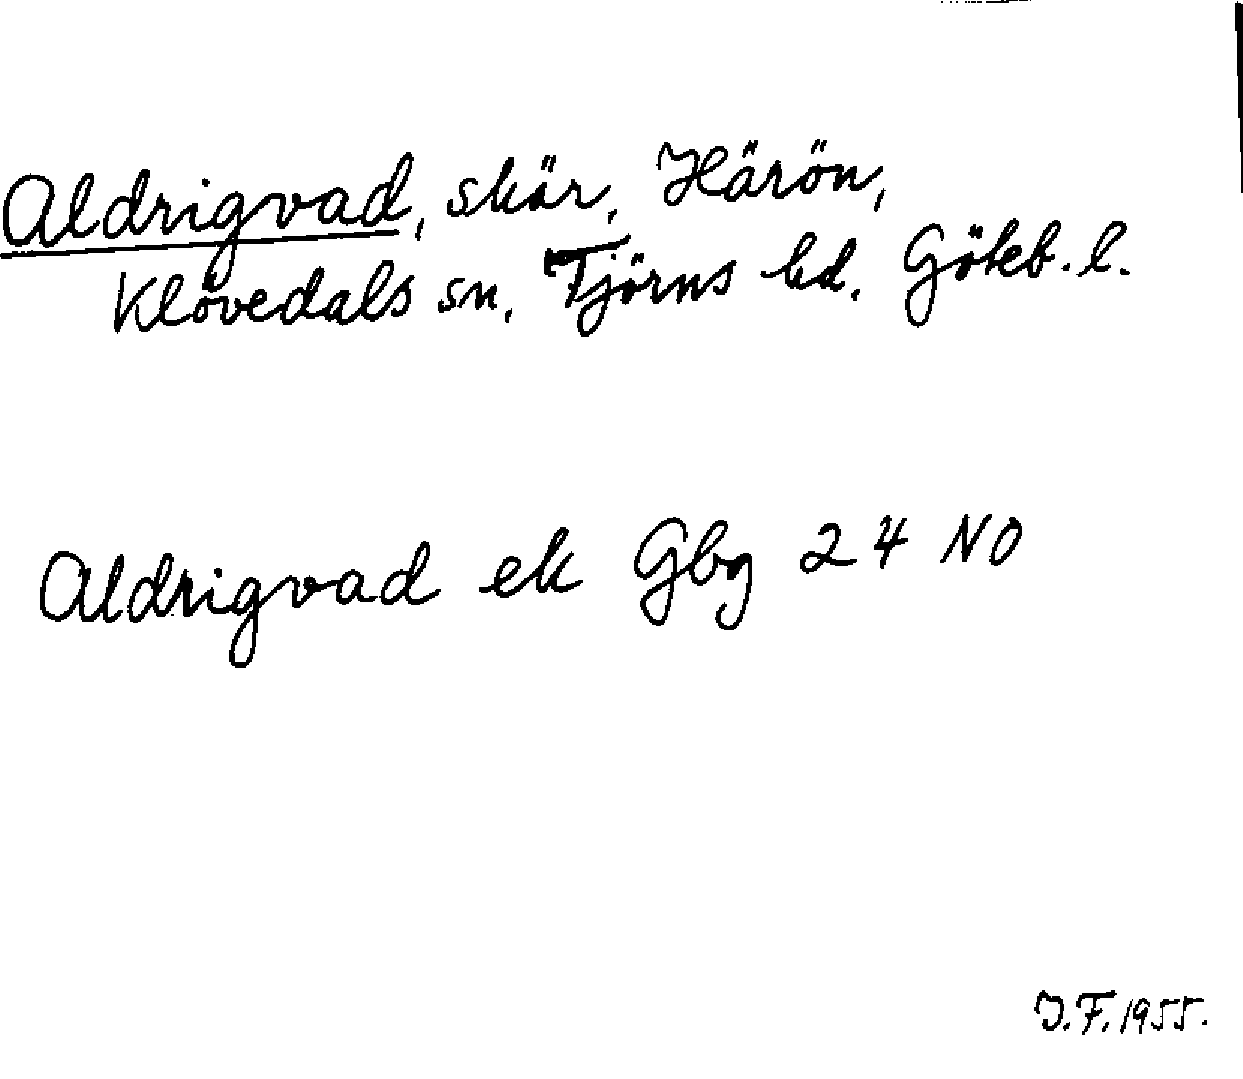 Aldrigvad, skär, Härön,
Klövedals sn, Tjörns hd. Göteb. l.
Aldrigvad ek Gbg 24 NO
J.F. 1955.